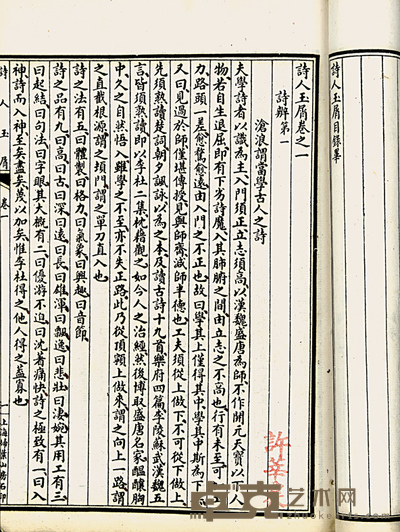 詩人玉屑目錄畢
詩人玉屑卷之一
詩辨第一
滄浪謂當學古人之詩
夫學詩者以識為主入門須正立志須高以漢魏盛唐為師不作開元天寶以下人
物若自生退屈即有下劣詩魔入其肺腑之間由立志之不高也行有未至可加工
力路頭一差愈騖愈遠由入門之不正也故曰學其上僅得其中學其中斯為下矣
又曰見過於師僅堪傳授見與師齊減師半德也工夫須從上做下不可從下做上
先須熟讀楚詞朝夕諷詠以為之本及讀古詩十九首樂府四篇李陵蘇武漢魏五
言皆須熟讀即以李杜二集枕藉觀之如今人之治經然後博取盛唐名家醞釀胸
中久之自然悟入雖學之不至亦不失正路此乃從頂𩕳上做來謂之向上一路謂
之直截根源謂之頓門謂之單刀直入也
詩之法有五曰體製曰格力曰氣象曰興趣曰音節
詩之品有九曰高曰古曰深曰遠曰長曰雄渾曰飄逸曰悲壯曰淒婉其用工有三
曰起結曰句法曰字眼其大概有二曰優游不迫曰沈著痛快詩之極致有一曰入
神詩而入神至矣盡矣蔑以加矣惟李杜得之他人得之蓋寡也
詩人玉屑
卷一
一
上海掃葉山房石印
卓克艺术网